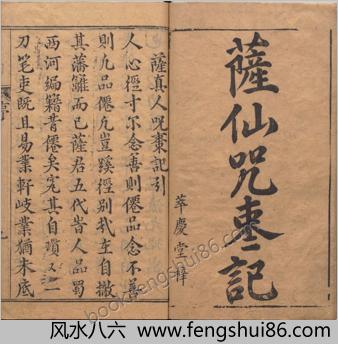 薩仙咒棗記
萃慶堂梓
薩真人咒棗記引
人心徑寸尔念善則僊品念不善
則九品僊凢豈蹊徑別哉主自撤
其藩籬而已薩君五代旹人品蜀
西河編籍昔僊矣究其自頊又一
刀筆吏既且易業軒岐業猶未底
book.fengshui86.com
风水八六 www.fengshui86.com